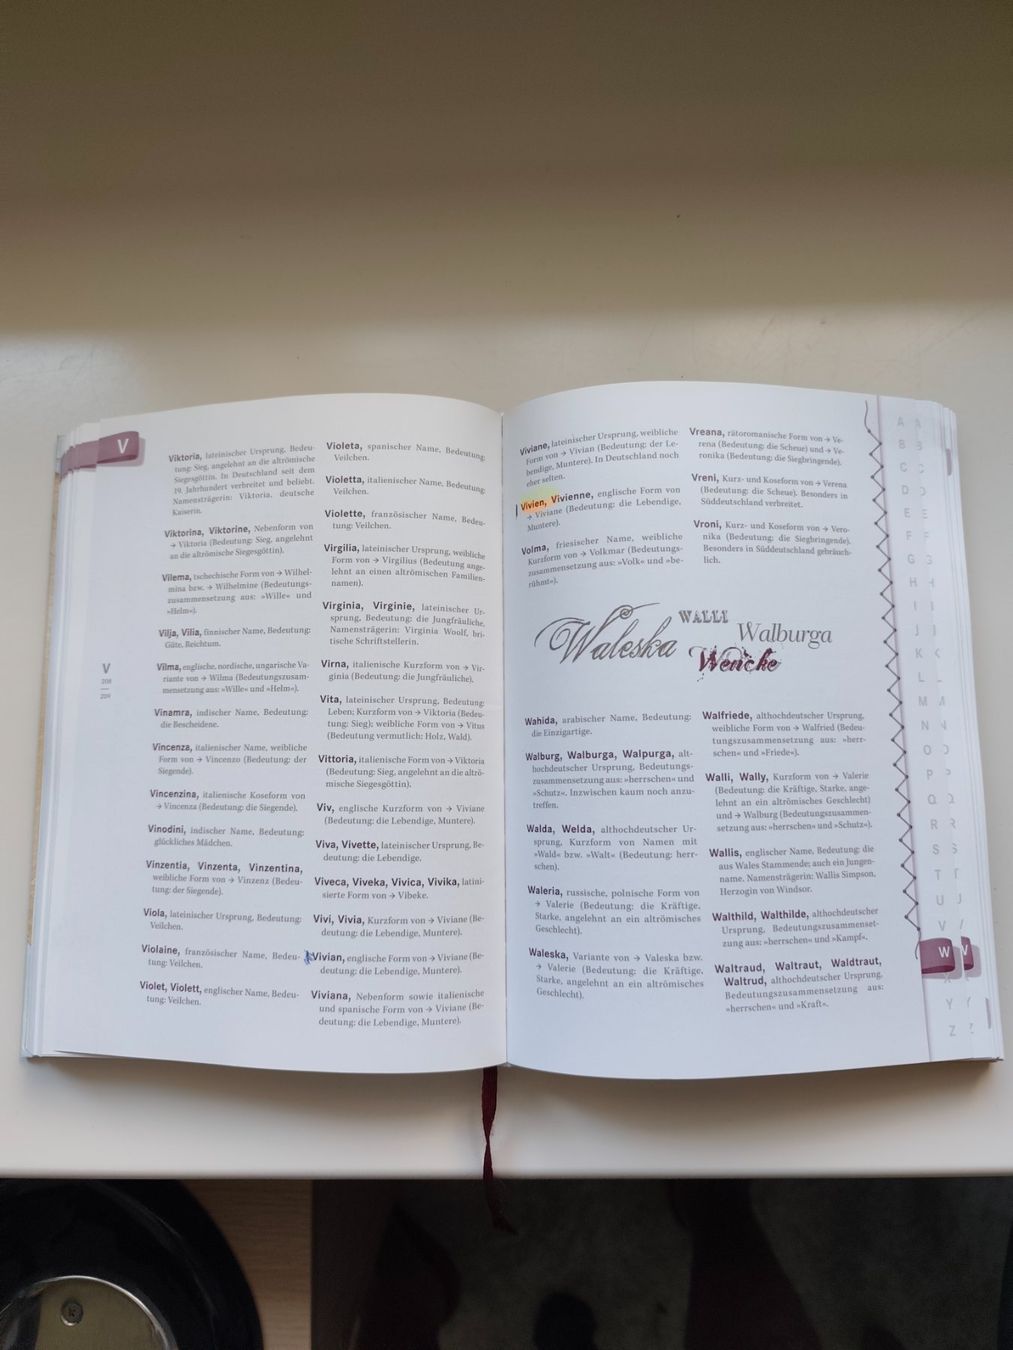 V
Viktoria, lateinischer Ursprung, Bedeu-
tung: Sieg, angelehnt an die altrömische
Siegesgöttin. In Deutschland seit dem
19. Jahrhundert verbreitet und beliebt.
Namensträgerin: Viktoria, deutsche
Kaiserin.
Viktorina, Viktorine, Nebenform von
→ Viktoria (Bedeutung: Sieg, angelehnt
an die altrömische Siegesgöttin).
Vilema, tschechische Form von → Wilhel-
mina bzw. → Wilhelmine (Bedeutungs-
zusammensetzung aus: »Wille« und
»Helm«).
Vilja, Vilia, finnischer Name, Bedeutung:
Güte, Reichtum.
Vilma, englische, nordische, ungarische Va-
riante von → Wilma (Bedeutungszusam-
mensetzung aus: »Wille« und »Helm«).
Vinamra, indischer Name, Bedeutung:
die Bescheidene.
Vincenza, italienischer Name, weibliche
Form von → Vincenzo (Bedeutung: der
Siegende).
Vincenzina, italienische Koseform von
→ Vincenza (Bedeutung: die Siegende).
Vinodini, indischer Name, Bedeutung:
glückliches Mädchen.
Vinzentia, Vinzenta, Vinzentina,
weibliche Form von → Vinzenz (Bedeu-
tung: der Siegende).
Viola, lateinischer Ursprung, Bedeutung:
Veilchen.
Violaine, französischer Name, Bedeu-
tung: Veilchen.
Violet, Violett, englischer Name, Bedeu-
tung: Veilchen.
V
208
209
Violeta, spanischer Name, Bedeutung:
Veilchen.
Violetta, italienischer Name, Bedeutung:
Veilchen.
Violette, französischer Name, Bedeu-
tung: Veilchen.
Virgilia, lateinischer Ursprung, weibliche
Form von → Virgilius (Bedeutung ange-
lehnt an einen altrömischen Familien-
namen).
Virginia, Virginie, lateinischer Ur-
sprung, Bedeutung: die Jungfräuliche.
Namensträgerin: Virginia Woolf, bri-
tische Schriftstellerin.
Virna, italienische Kurzform von → Vir-
ginia (Bedeutung: die Jungfräuliche).
Vita, lateinischer Ursprung, Bedeutung:
Leben; Kurzform von → Viktoria (Bedeu-
tung: Sieg); weibliche Form von → Vitus
(Bedeutung vermutlich: Holz, Wald).
Vittoria, italienische Form von → Viktoria
(Bedeutung: Sieg, angelehnt an die altrö-
mische Siegesgöttin).
Viv, englische Kurzform von → Viviane
(Bedeutung: die Lebendige, Muntere).
Viva, Vivette, lateinischer Ursprung, Be-
deutung: die Lebendige.
Viveca, Viveka, Vivica, Vivika, latini-
sierte Form von → Vibeke.
Vivi, Vivia, Kurzform von → Viviane (Be-
deutung: die Lebendige, Muntere).
Vivian, englische Form von → Viviane (Be-
deutung: die Lebendige, Muntere).
Viviana, Nebenform sowie italienische
und spanische Form von → Viviane (Be-
deutung: die Lebendige, Muntere).
Viviane, lateinischer Ursprung, weibliche
Form von → Vivian (Bedeutung: der Le-
bendige, Muntere). In Deutschland noch
eher selten.
Vivien, Vivienne, englische Form von
→ Viviane (Bedeutung: die Lebendige,
Muntere).
Volma, friesischer Name, weibliche
Kurzform von → Volkmar (Bedeutungs-
zusammensetzung aus: »Volk« und »be-
rühmt«).
Vreana, rätoromanische Form von → Ve-
rena (Bedeutung: die Scheue) und → Ve-
ronika (Bedeutung: die Siegbringende).
Vreni, Kurz- und Koseform von → Verena
(Bedeutung: die Scheue). Besonders in
Süddeutschland verbreitet.
Vroni, Kurz- und Koseform von → Vero-
nika (Bedeutung: die Siegbringende).
Besonders in Süddeutschland gebräuch-
lich.
Waleska
WALLI
Walburga
Wencke
Wahida, arabischer Name, Bedeutung:
die Einzigartige.
Walburg, Walburga, Walpurga, alt-
hochdeutscher Ursprung, Bedeutungs-
zusammensetzung aus: »herrschen« und
»Schutz«. Inzwischen kaum noch anzu-
treffen.
Walda, Welda, althochdeutscher Ur-
sprung, Kurzform von Namen mit
»Wald« bzw. »Walt« (Bedeutung: herr-
schen).
Waleria, russische, polnische Form von
→ Valerie (Bedeutung: die Kräftige,
Starke, angelehnt an ein altrömisches
Geschlecht).
Waleska, Variante von → Valeska bzw.
→ Valerie (Bedeutung: die Kräftige,
Starke, angelehnt an ein altrömisches
Geschlecht).
Walfriede, althochdeutscher Ursprung,
weibliche Form von → Walfried (Bedeu-
tungszusammensetzung aus: »herr-
schen« und »Friede«).
Walli, Wally, Kurzform von → Valerie
(Bedeutung: die Kräftige, Starke, ange-
lehnt an ein altrömisches Geschlecht)
und → Walburg (Bedeutungszusammen-
setzung aus: »herrschen« und »Schutz«).
Wallis, englischer Name, Bedeutung: die
aus Wales Stammende; auch ein Jungen-
name. Namensträgerin: Wallis Simpson,
Herzogin von Windsor.
Walthild, Walthilde, althochdeutscher
Ursprung, Bedeutungszusammenset-
zung aus: »herrschen« und »Kampf«.
Waltraud, Waltraut, Waldtraut,
Waltrud, althochdeutscher Ursprung,
Bedeutungszusammensetzung aus:
»herrschen« und »Kraft«.
A
B
C
D
E
F
G
H
I
J
K
L
M
N
O
P
Q
R
S
T
U
V
W
X
Y
Z